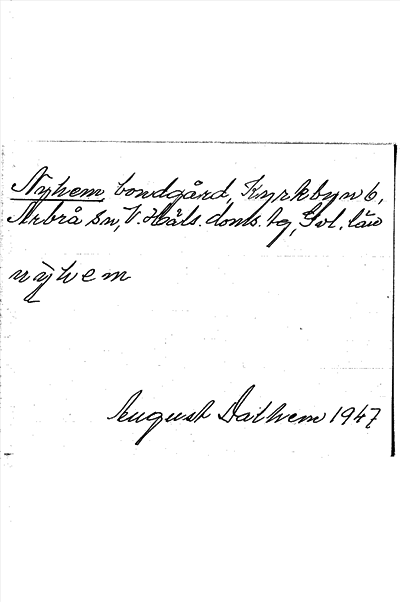 Nyhem, bondgård, Kyrkbyn 6,
Arbrå sn, V. Häls. doms. tg, Gvl. län
nỳhem
August Dalhem 1947